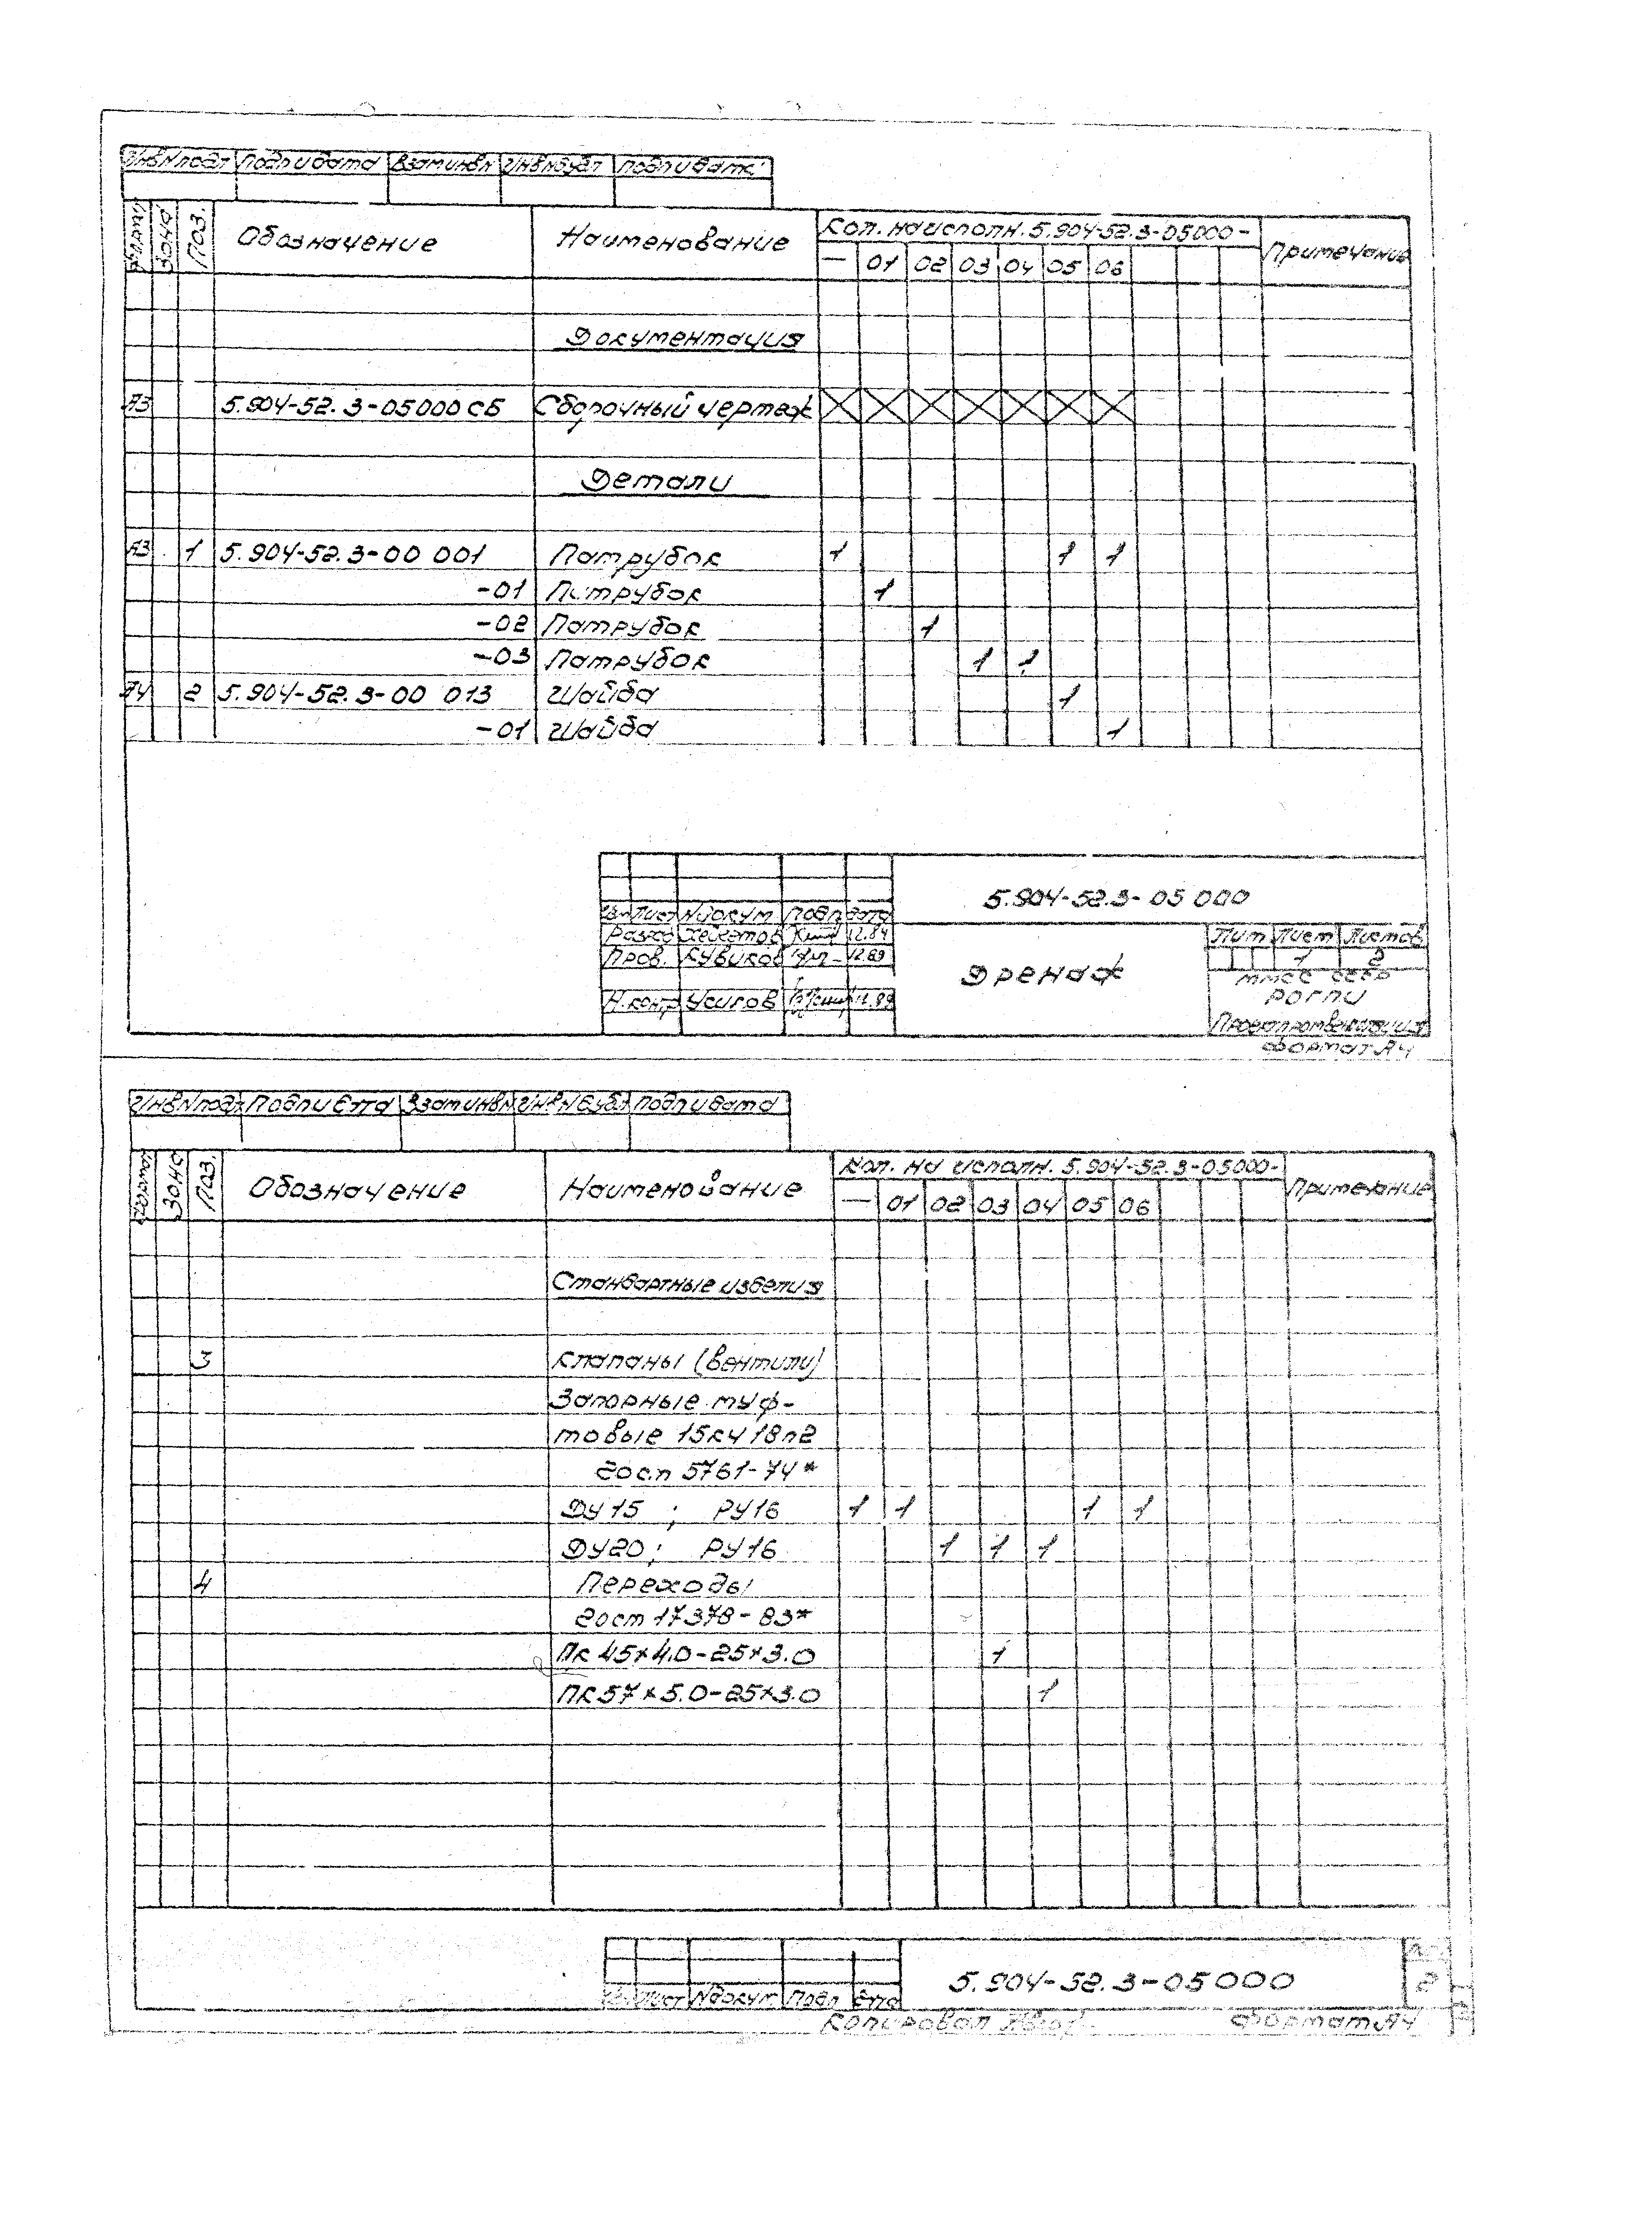 Инв N подл Подп и дата Взам инв N Инв N дубл Подп и дата
Формат Зона Поз. Обозначение Наименование Кол. на исполн. 5.904-52.3-05000- Примечание
— 01 02 03 04 05 06
Документация
А3 5.904-52.3-05000 СБ Сборочный чертеж
Детали
А3 1 5.904-52.3-00 001 Патрубок 1 1 1
-01 Патрубок 1
-02 Патрубок 1
-03 Патрубок 1 1
А4 2 5.904-52.3-00 013 Шайба 1
-01 Шайба 1
5.904-52.3-05 000
Изм Лист N докум Подп Дата
Разраб 12.89
Пров. Кувиков 12.89
Н.контр Усиков 12.89
Дренаж
Лит Лист Листов
1 2
ММСС СССР
РОГПИ
Проектпромвентиляция
Формат А4
Инв N подл Подп и дата Взам инв N Инв N дубл Подп и дата
Формат Зона Поз. Обозначение Наименование Кол. на исполн. 5.904-52.3-05000- Примечание
— 01 02 03 04 05 06
Стандартные изделия
3 Клапаны (вентили)
запорные муф-
товые 15кч 18п2
гост 5761-74*
ДУ15 ; РУ16 1 1 1 1
ДУ20; РУ16 1 1 1
4 Переходы
гост 17378-83*
ПК 45×4.0-25×3.0 1
ПК 57×5.0-25×3.0 1
5.904-52.3-05000
Лист
2
Изм Лист N докум Подп Дата
Копировал
Формат А4